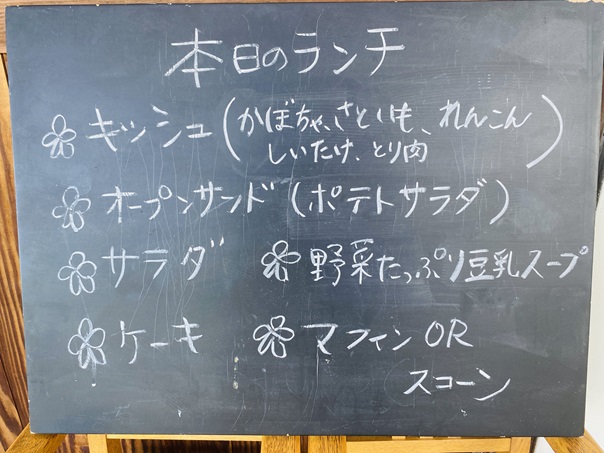 本日のランチ
キッシュ(かぼちゃ、さといも、れんこん
しいたけ、とり肉)
オープンサンド(ポテトサラダ)
サラダ 野菜たっぷり豆乳スープ
ケーキ マフィン OR
スコーン